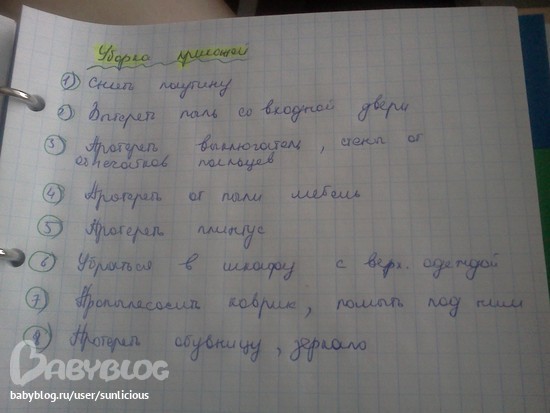 Уборка прихожей
1) Снять паутину
2) Вытереть пыль со входной двери
3) Протереть выключатель, стены от
отпечатков пальцев
4) Протереть от пыли мебель
5) Протереть плинтус
6) Убраться в шкафу с верх. одеждой
7) Пропылесосить коврик, помыть под ним
8) Протереть обувницу, зеркало
BABYBLOG
babyblog.ru/user/sunlicious